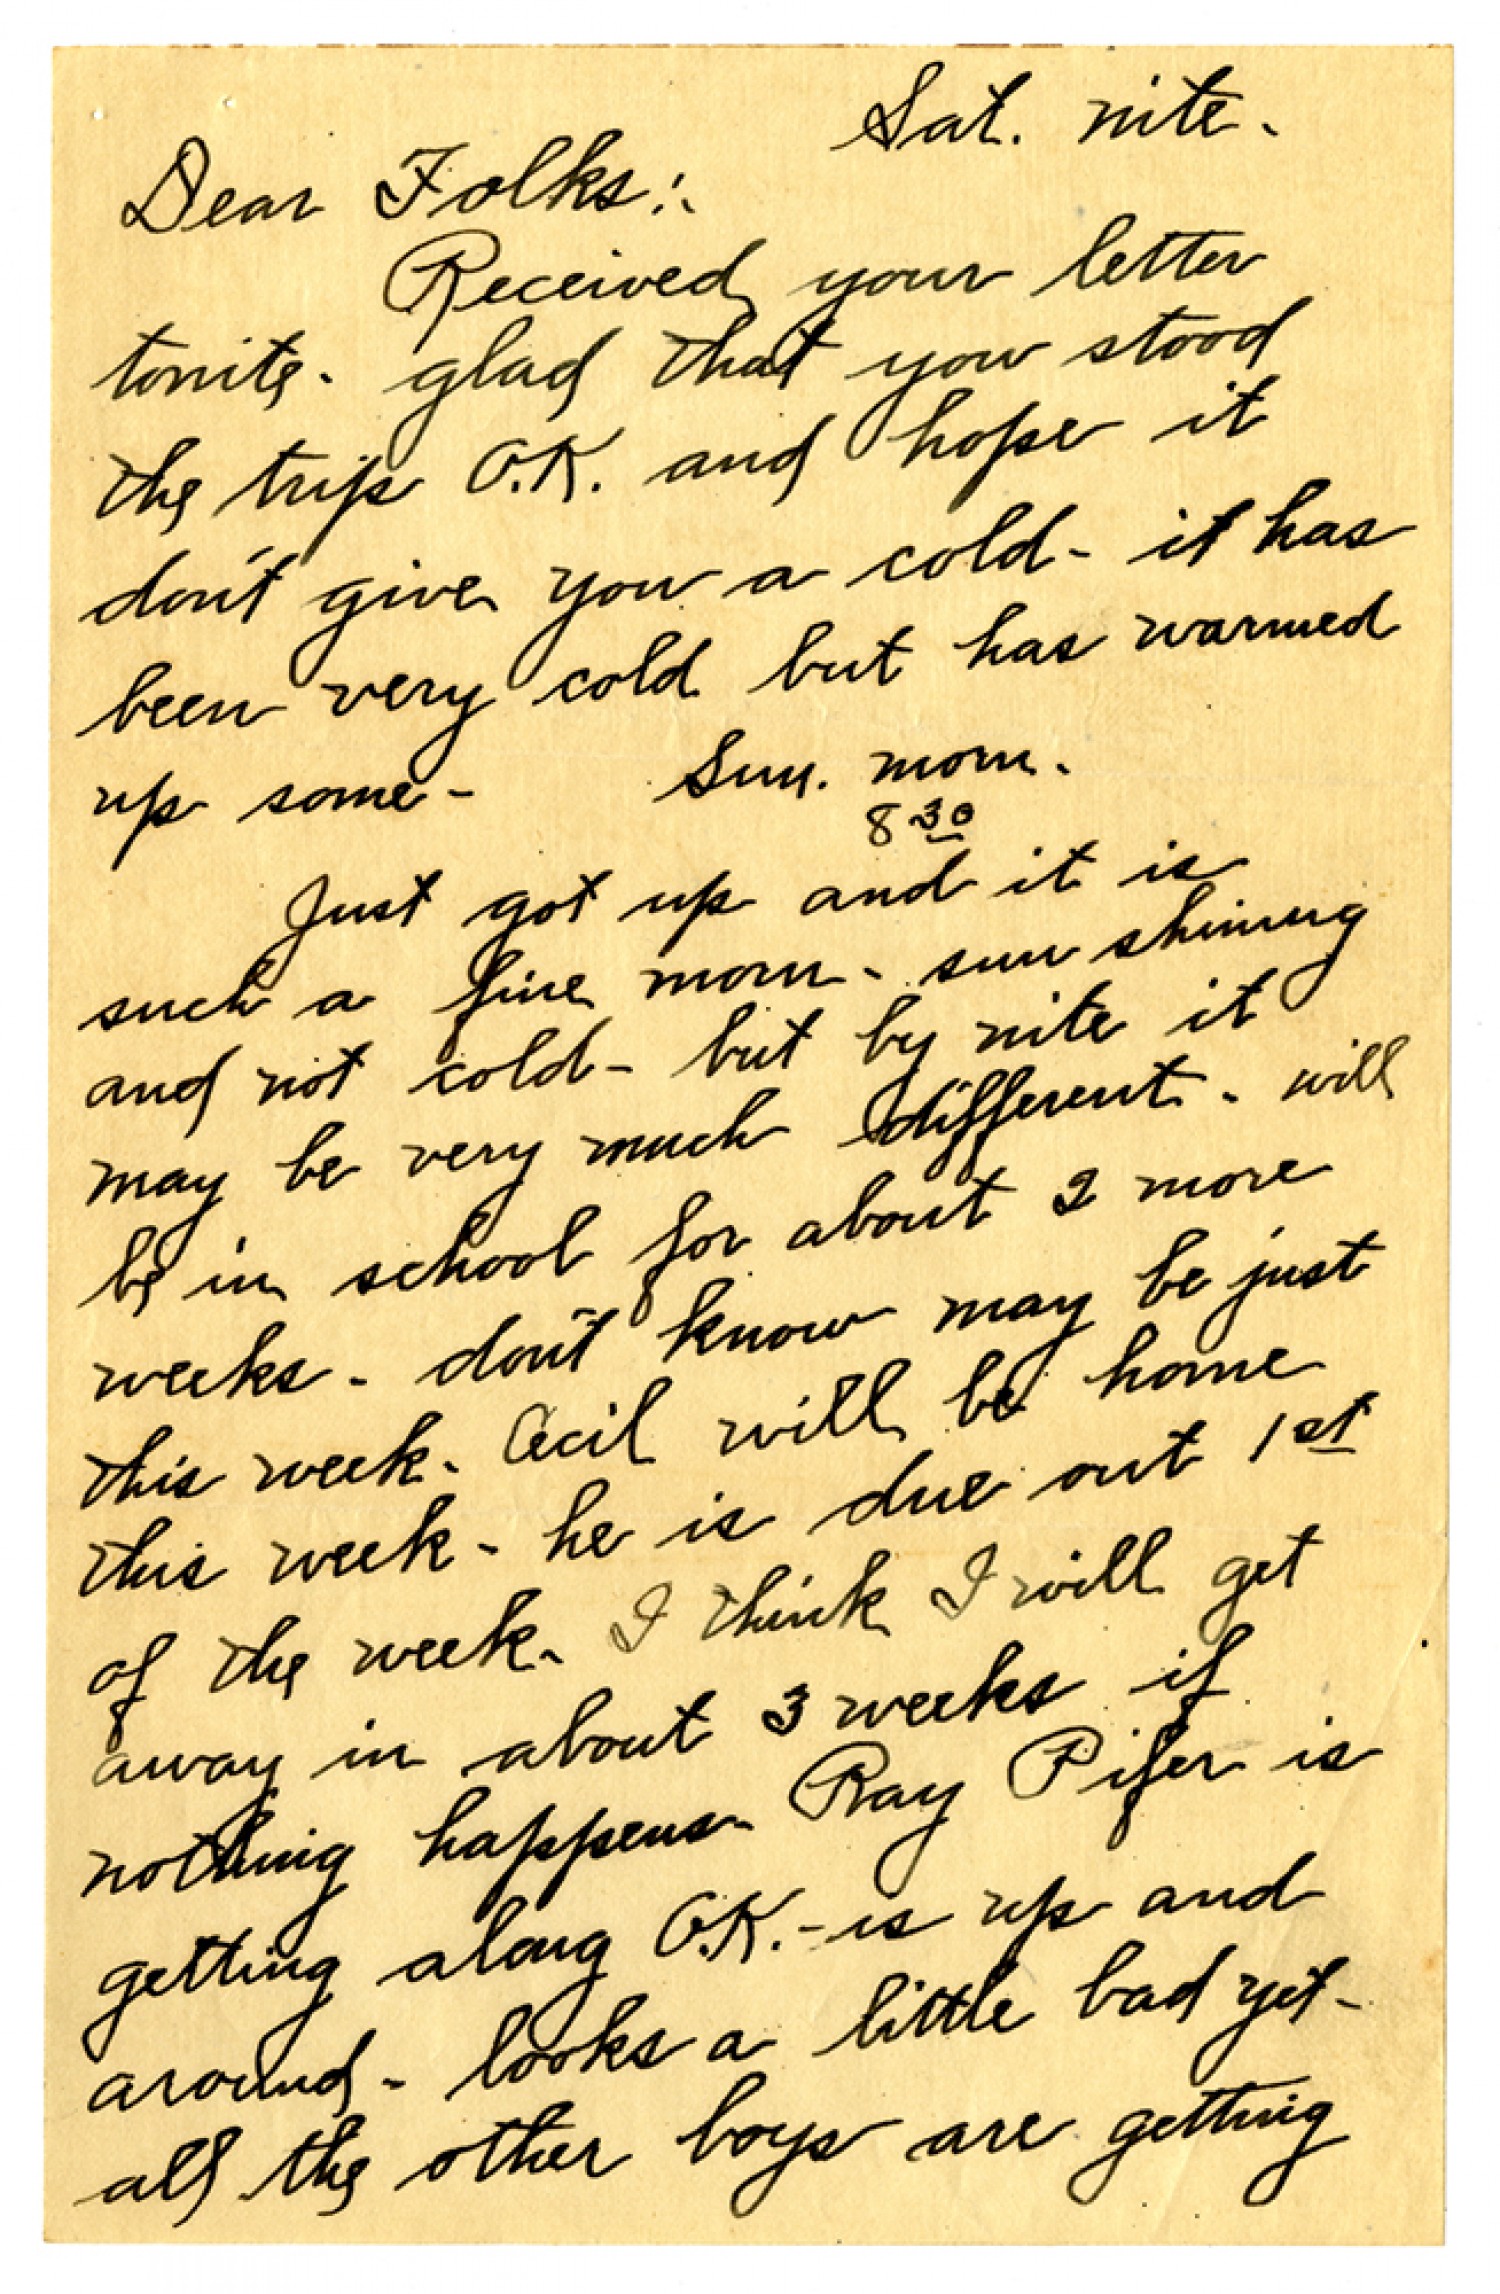 Sat. nite.
Dear Folks:.
Received your letter
tonite. glad that you stood
the trip O.K. and hope it
don't give you a cold - it has
been very cold but has warmed
up some - Sun. morn.
8 30
Just got up and it is
such a fine morn - sun shining
and not cold - but by nite it
may be very much different. will
be in school for about 2 more
weeks - don't know may be just
this week. Cecil will be home
this week - he is due out 1st
of the week. I think I will get
away in about 3 weeks if
nothing happens. Ray Pifer is
getting along O.K. - is up and
around - looks a little bad yet -
all the other boys are getting